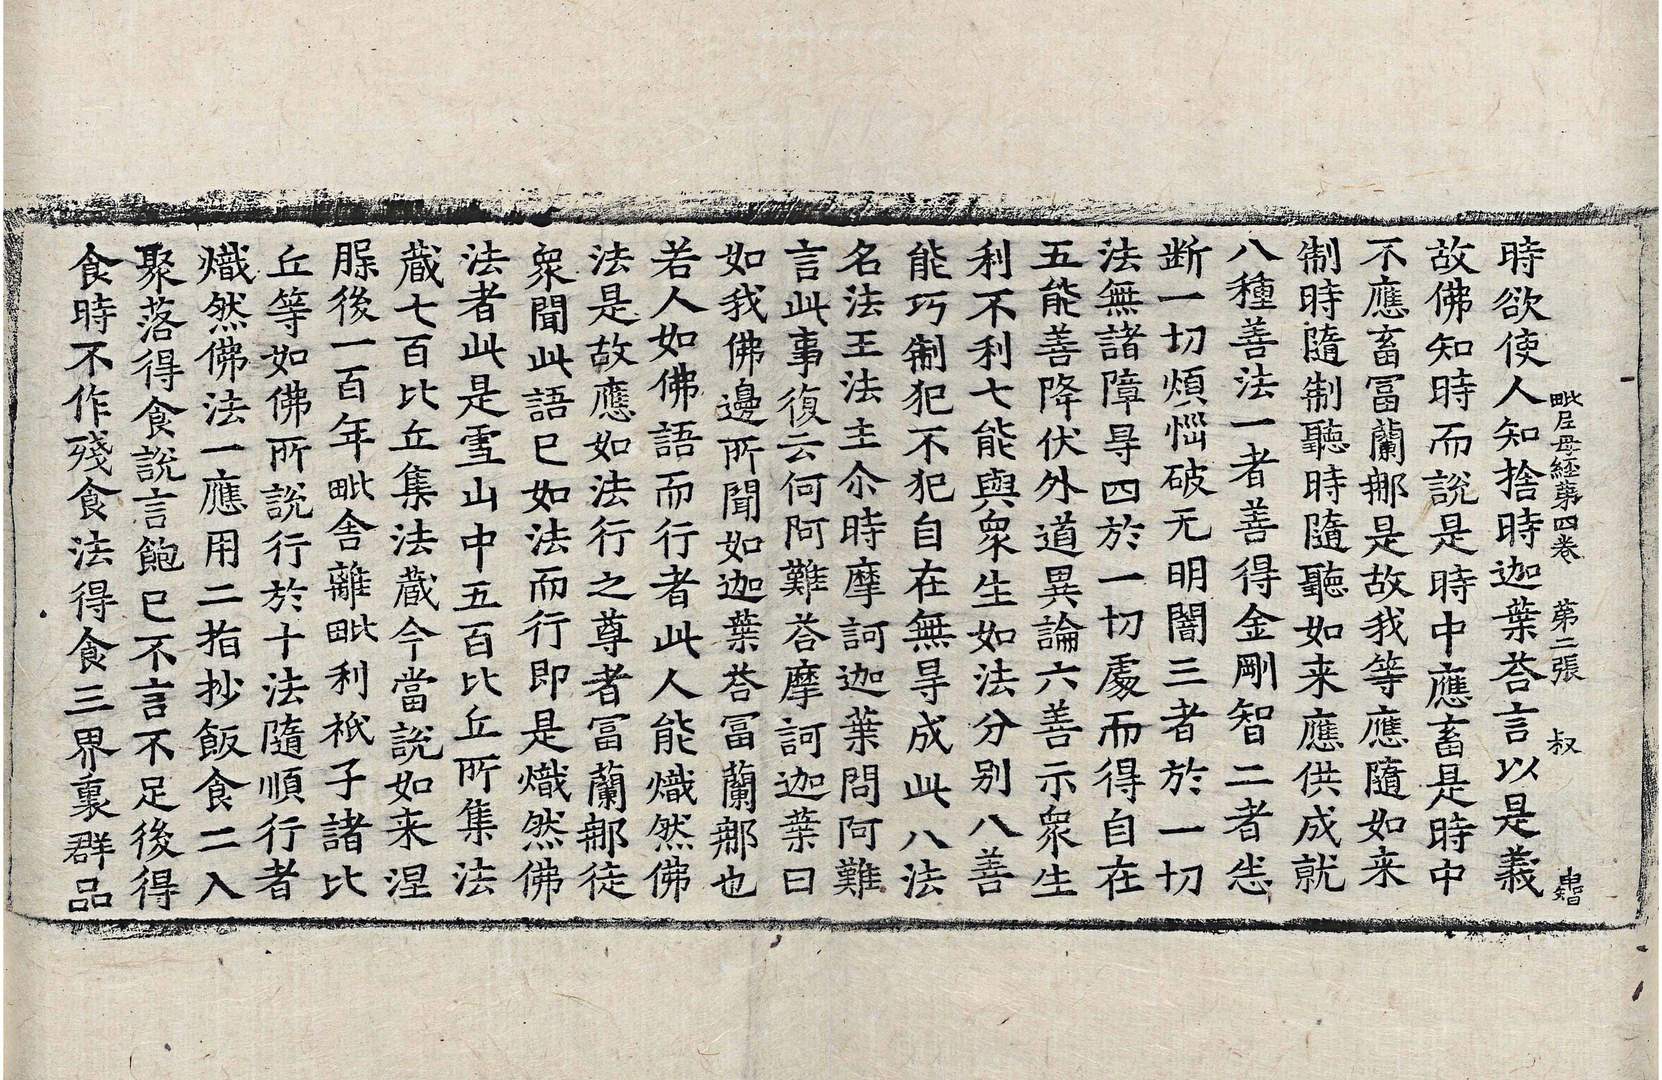 毗尼母経第四卷 第二張 叔 申智
時欲使人知捨時迦葉荅言以是義
故佛知時而說是時中應畜是時中
不應畜冨蘭那是故我等應隨如来
制時隨制聽時隨聽如来應供成就
八種善法一者善得金剛智二者㤀
断一切煩惱破无明闇三者於一切
法無諸障㝵四於一切處而得自在
五能善降伏外道異論六善示衆生
利不利七能與衆生如法分別八善
能巧制犯不犯自在無㝵成此八法
名法王法主尒時摩訶迦葉問阿難
言此事復云何阿難荅摩訶迦葉曰
如我佛邊所聞如迦葉荅冨蘭那也
若人如佛語而行者此人能熾然佛
法是故應如法行之尊者冨蘭那徒
衆聞此語已如法而行即是熾然佛
法者此是雪山中五百比丘所集法
蔵七百比丘集法蔵今當說如来涅
脲後一百年毗舍離毗利祇子諸比
丘等如佛所說行於十法隨順行者
熾然佛法一應用二指抄飯食二入
聚落得食說言飽已不言不足後得
食時不作殘食法得食三界裏群品